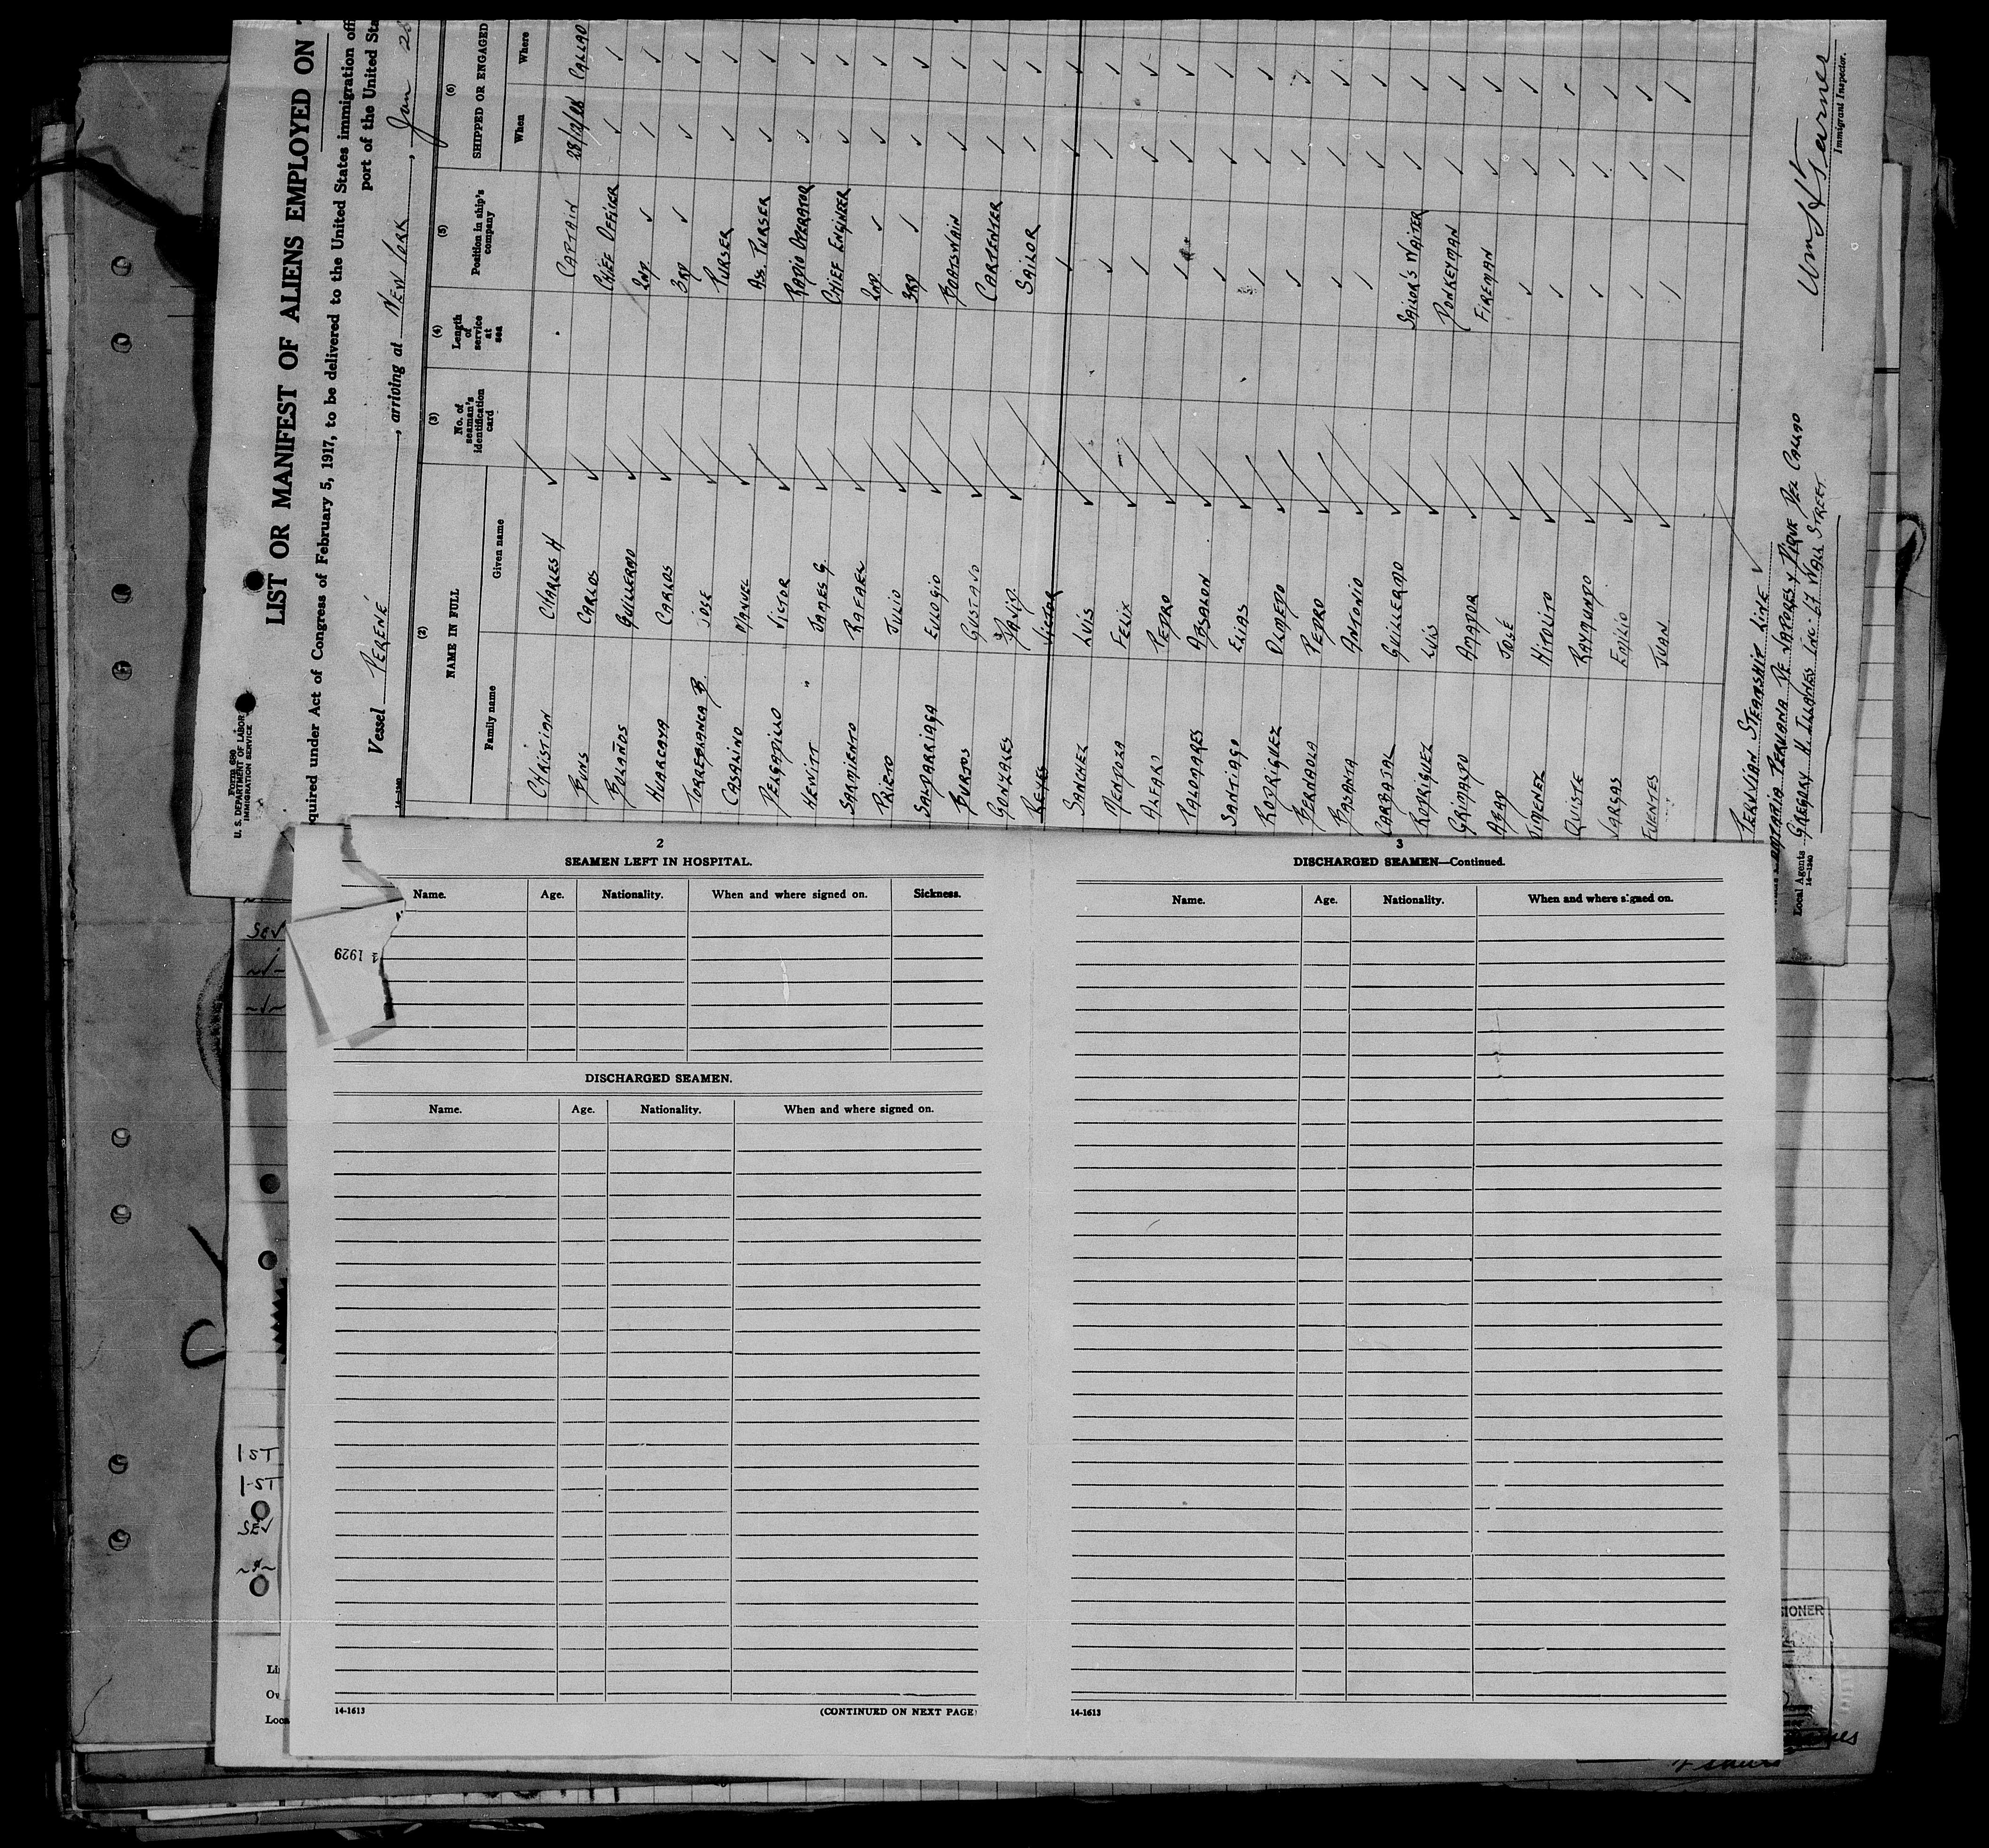 Form 680
U. S. DEPARTMENT OF LABOR
IMMIGRATION SERVICE
LIST OR MANIFEST OF ALIENS EMPLOYED ON
equired under Act of Congress of February 5, 1917, to be delivered to the United States immigration off
port of the United Sta
Vessel PERENÉ, arriving at NEW YORK, Jan 28
14-1240
(2) (3) (4) (5) (6)
NAME IN FULL No. of seaman's identification card Length of service at sea Position in ship's company SHIPPED OR ENGAGED
Family name Given name When Where
CHRISTIAN CHARLES H ✓ CAPTAIN 28/12/28 CALLAO
BUNS CARLOS ✓ CHIEF OFFICER ✓ ✓
BOLAÑOS GUILLERMO ✓ 2ND ✓ ✓ ✓
HUARCAYA CARLOS ✓ 3RD ✓ ✓ ✓
TORREBLANCA B. JOSÉ ✓ PURSER ✓ ✓
CASALINO MANUEL ✓ ASS. PURSER ✓ ✓
DELGADILLO VICTOR ✓ RADIO OPERATOR ✓ ✓
HEWITT " JAMES G. ✓ CHIEF ENGINEER ✓ ✓
SARMIENTO RAFAEL ✓ 2ND ✓ ✓ ✓
PRIETO JULIO ✓ 3RD ✓ ✓ ✓
SALDARRIAGA EULOGIO ✓ BOATSWAIN ✓ ✓
BURTOS GUSTAVO ✓ CARPENTER ✓ ✓
GONZALES DAVID ✓ SAILOR ✓ ✓
REYES VICTOR ✓ ✓ ✓
SANCHEZ LUIS ✓ ✓ ✓ ✓
MENDOZA FELIX ✓ ✓ ✓ ✓
ALFARO PEDRO ✓ ✓ ✓ ✓
PALOMARES ABSALON ✓ ✓ ✓ ✓
SANTIAGO ELIAS ✓ ✓ ✓ ✓
RODRIGUEZ OLMEDO ✓ ✓ ✓ ✓
BERNAOLA PEDRO ✓ ✓ ✓ ✓
BASANTA ANTONIO ✓ ✓ ✓ ✓
CARBAJAL GUILLERMO ✓ ✓ ✓
RODRIGUEZ LUIS ✓ SAILOR'S WAITER ✓ ✓
GRIMALDO AMADOR ✓ DONKEYMAN ✓ ✓
ABAD JOSÉ ✓ FIREMAN ✓ ✓
JIMENEZ HIPOLITO ✓ ✓ ✓ ✓
QUISTE RAYMUNDO ✓ ✓ ✓ ✓
VARGAS EMILIO ✓ ✓ ✓ ✓
FUENTES JUAN ✓ ✓ ✓ ✓
PERUVIAN STEAMSHIP LINE ✓
PERUANA DE VAPORES Y DIQUE DEL CALLAO
Local Agents GREGORY H. ILLANES INC. 67 WALL STREET
14-1240
Wm H Turner
Immigrant Inspector.
2
SEAMEN LEFT IN HOSPITAL.
Name. Age. Nationality. When and where signed on. Sickness.
1929
DISCHARGED SEAMEN.
Name. Age. Nationality. When and where signed on.
14-1613 (CONTINUED ON NEXT PAGE)
3
DISCHARGED SEAMEN—Continued.
Name. Age. Nationality. When and where signed on.
14-1613
SEV
1ST
1ST
SEV
Li
Ow
Loca
SIONER